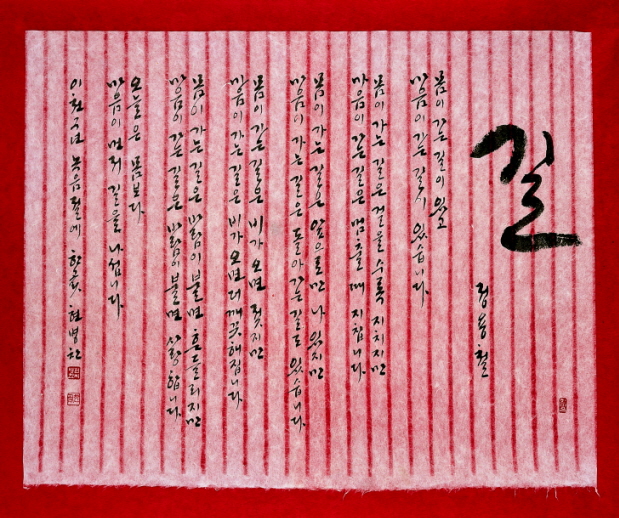 길
정용철
몸이 가는 길이 있고
마음이 가는 길이 있습니다
몸이 가는 길은 걸을수록 지치지만
마음이 가는 길은 멈출 때 지칩니다
몸이 가는 길은 앞으로만 나 있지만
마음이 가는 길은 돌아가는 길도 있습니다
몸이 가는 길은 비가 오면 젖지만
마음이 가는 길은 비가 오면 더 깨끗해집니다
몸이 가는 길은 바람이 불면 흔들리지만
마음이 가는 길은 바람이 불면 사랑합니다
오늘은 몸보다
마음이 먼저 길을 나섭니다
이천구년 녹음절에 현병찬